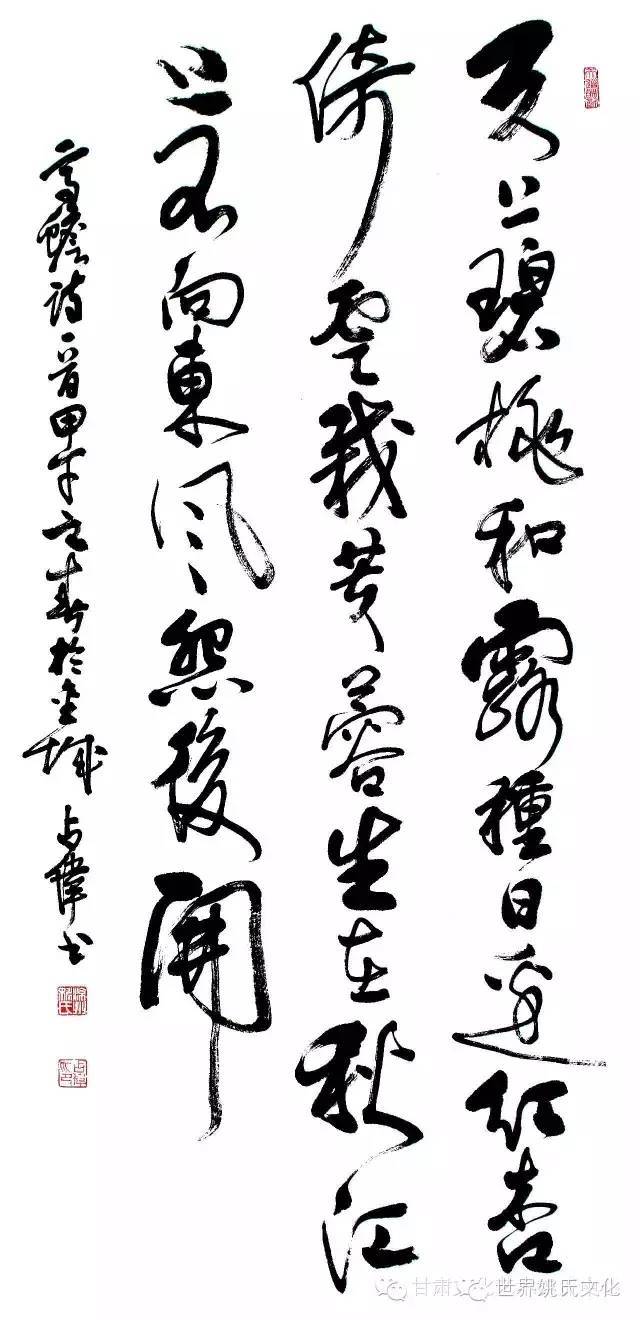 天上碧桃和露種日邊紅杏
倚雲栽芙蓉生在秋江
上不向東風怨後開
高蟾詩一首甲午之春於金城 占偉書
甘肃 世界姚氏文化